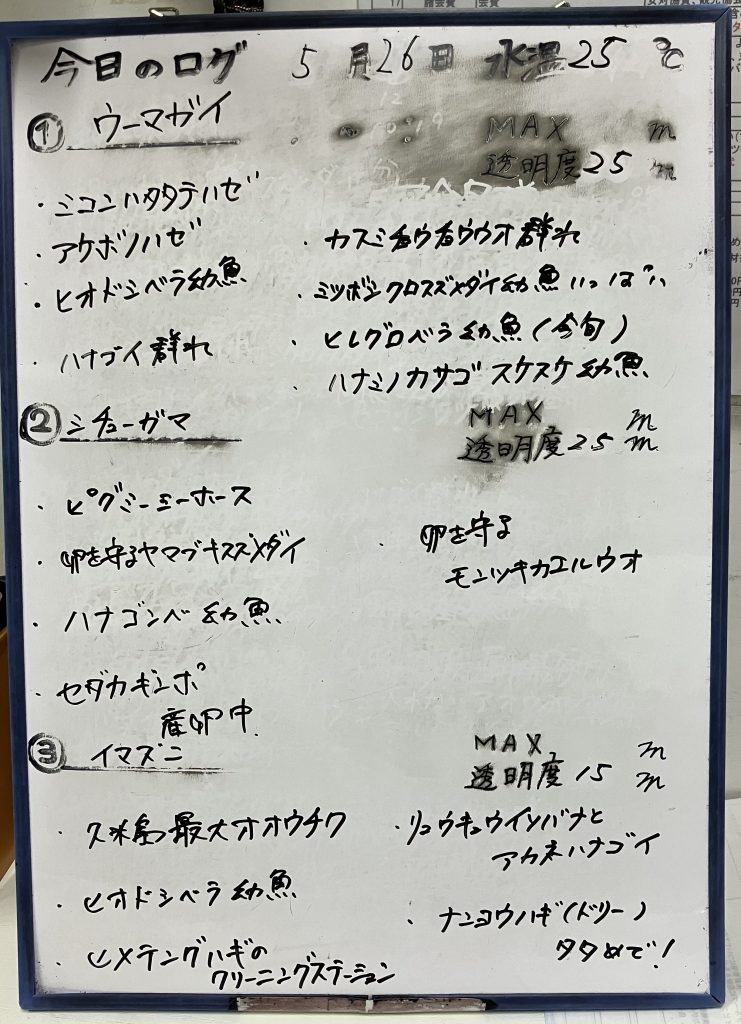 今日のログ 5月26日 水温25℃
① ウーマガイ
MAX m
透明度25 m
・ミコンハタタテハゼ
・アケボノハゼ
・ヒオドシベラ幼魚
・ハナゴイ群れ
・カスミチョウチョウウオ群れ
・ミツボシクロスズメダイ幼魚いっぱい
・ヒレグロベラ幼魚(今旬)
・ハナミノカサゴスケスケ幼魚
② シチューガマ
MAX m
透明度25 m
・ピグミーシーホース
・卵を守るヤマブキスズメダイ
・ハナゴンベ幼魚
・セダカギンポ
産卵中
・卵を守る
モンツキカエルウオ
③ イマズニ
MAX m
透明度15 m
・久米島最大オオウチワ
・ヒオドシベラ幼魚
・ヒメテングハギの
クリーニングステーション
・リュウキュウイソバナと
アカネハナゴイ
・ナンヨウハギ(ドリー)
タタめで!